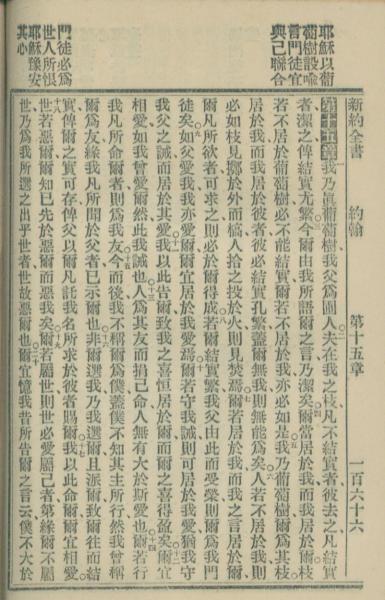 新約全書 約翰 第十五章 一百六十六
耶穌以葡
萄樹設喻
言門徒宜
與己聯合
門徒必為
世人所恨
耶穌豫安
其心
第十五章我乃眞葡萄樹、我父為圃人、夫在我之枝、凡不結實者、彼去之、凡結實
者、潔之、俾結實尤繁、今爾由我所語爾之言、乃潔矣、爾當居於我、而我居於爾、枝
若不居於葡萄樹、必不能結實、爾不居於我、亦必如是、我乃葡萄樹、爾為其枝、
居於我、而我居於彼者、彼必結實孔繁、蓋爾無我、則無能為矣、人若不居於我、則
必如枝見擲於外而槁、人拾之投於火、則見焚焉、爾若居於我、而我之言居於爾、
爾凡所欲者、可求之、則必於爾得成、若爾結實繁、我父由此而受榮、則爾為我門
徒矣、如父愛我、我亦愛爾、宜居於我愛焉、爾若守我誡、則可居於我愛、猶我守
我父之誡、而居於其愛、我以此告爾、致我之喜恒居於爾、而爾之喜得盈矣、爾宜
相愛、如我曾愛爾然、此我誡也、人為其友而捐己命、人無有大於斯愛也、爾若行
我凡所命爾者、則為我友、今而後我不稱爾為僕、蓋僕不知其主所行、然我曾稱
爾為友、緣我凡所聞於父者、已示爾也、非爾選我、乃我選爾、且派爾致爾往而結
實、俾爾之實可存、俾父以爾凡託我名所求於彼者、賜爾、我以此命爾、爾宜相愛、
世若惡爾、爾知已先於爾而惡我矣、爾若屬世、則世必愛屬己者、第緣爾不屬
世、乃為我所選之出乎世者、世故惡爾也、爾宜憶我昔所告爾之言云、僕不大於